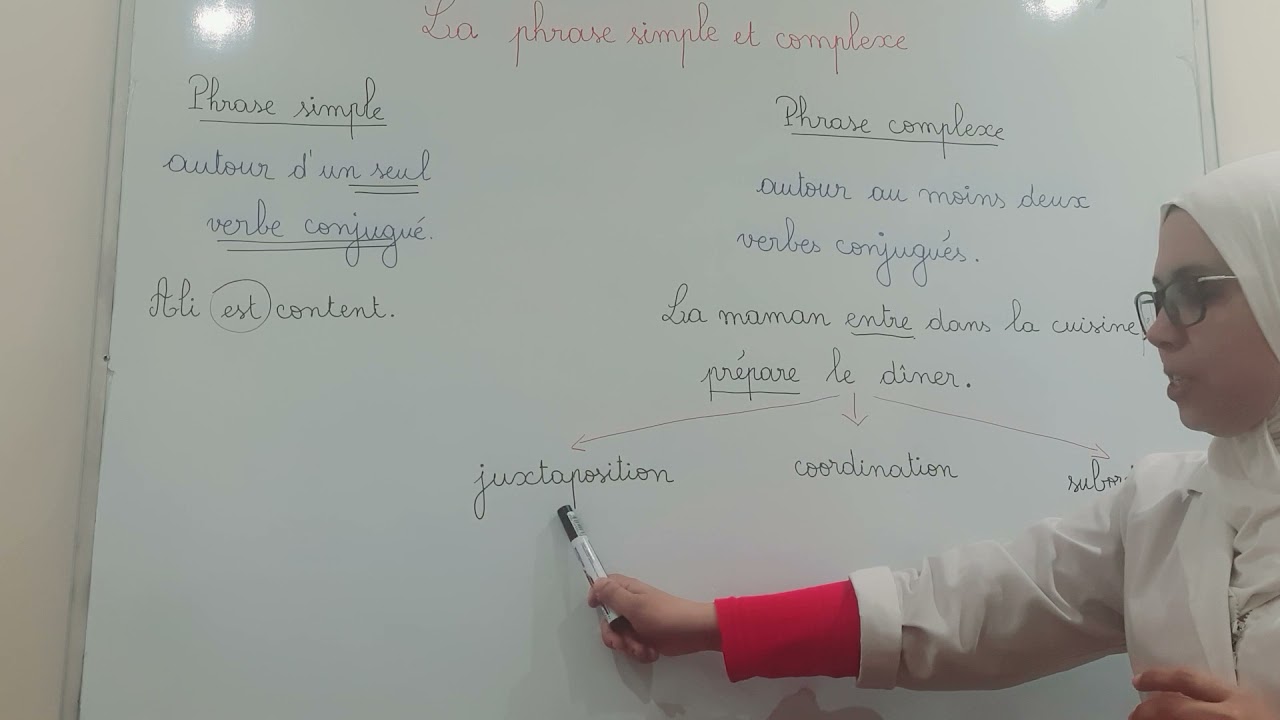 La phrase simple et complexe
Phrase simple
autour d'un seul
verbe conjugué.
Ali est content.
Phrase complexe
autour au moins deux
verbes conjugués.
La maman entre dans la cuisine
prépare le dîner.
juxtaposition
coordination